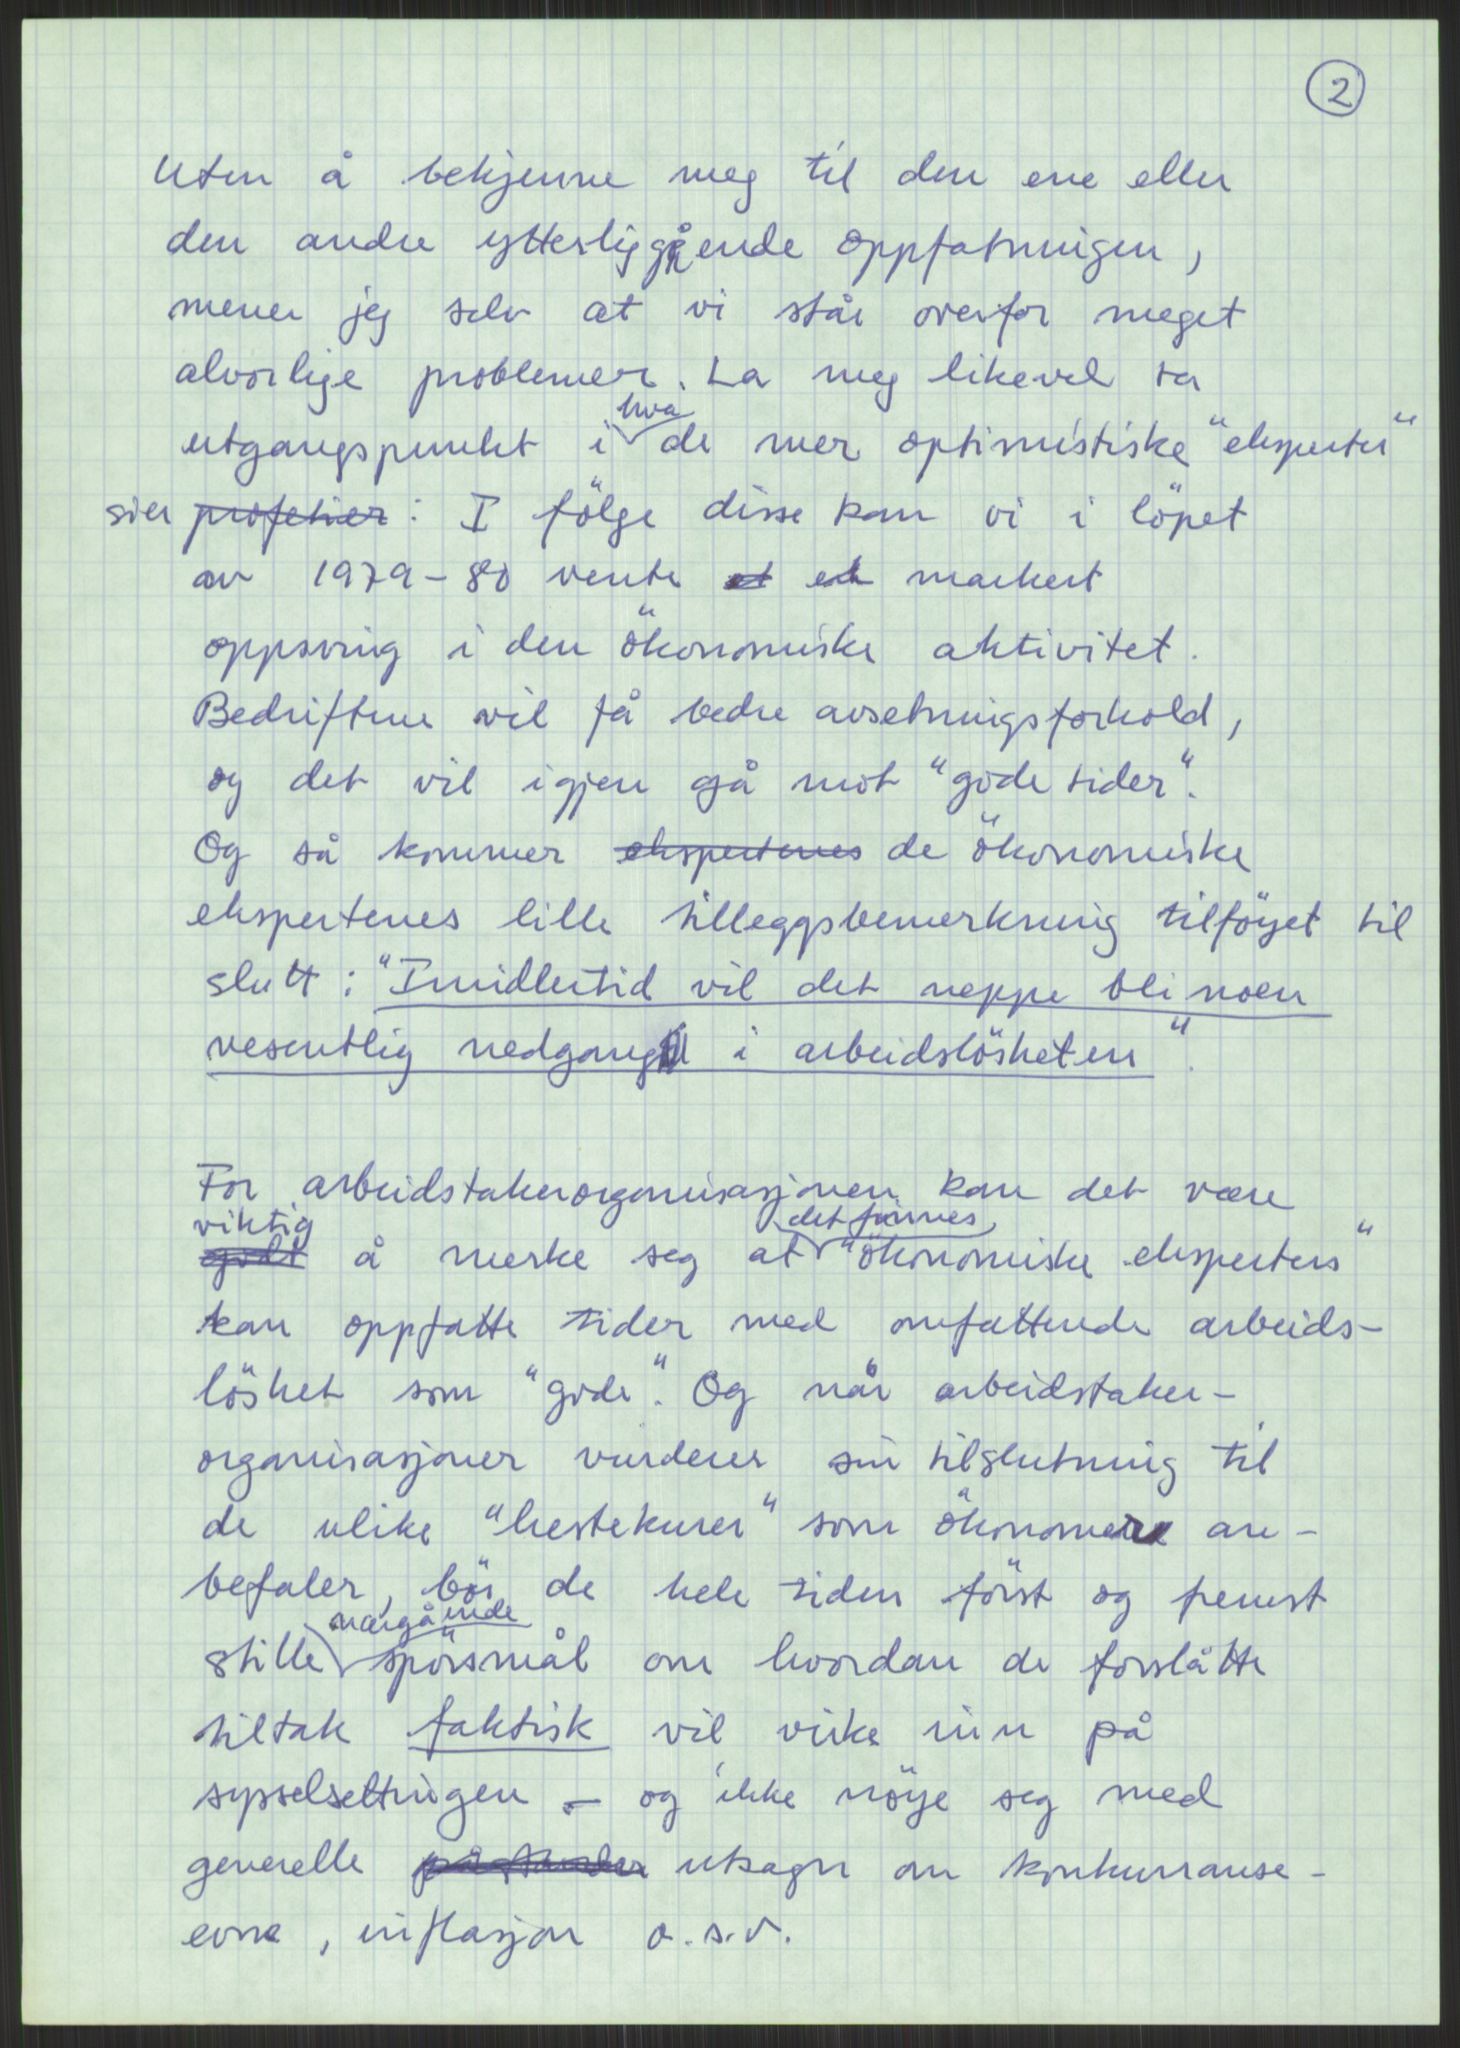 2
Uten å bekjenne meg til den ene eller
den andre ytterliggående oppfatningen,
mener jeg selv at vi står overfor meget
alvorlige problemer. La meg likevel ta
utgangspunkt i hva de mer optimistiske "eksperter"
sier profetier: I følge disse kan vi i löpet
av 1979-80 vente et markert
oppsving i den ökonomiske aktivitet.
Bedriftene vil få bedre avsetningsforhold,
og det vil igjen gå mot "gode tider".
Og så kommer ekspertenes de ökonomiske
ekspertenes lille tilleggsbemerkning tilföyet til
slutt: "Imidlertid vil det neppe bli noen
vesentlig nedgang i arbeidslösheten".
For arbeidstakerorganisasjonen kan det være
viktig godt å merke seg at det finnes "ökonomiske eksperters"
kan oppfatte tider med omfattende arbeids-
löshet som "gode". Og når arbeidstaker-
organisasjoner vurderer sin tilslutning til
de ulike "hestekurer" som ökonomene an-
befaler, bör de hele tiden först og fremst
stille nærgående spörsmål om hvordan de foreslåtte
tiltak faktisk vil virke inn på
sysselsettingen - og ikke nöye seg med
generelle påstander utsagn om konkurranse-
evne, inflasjon o.s.v.